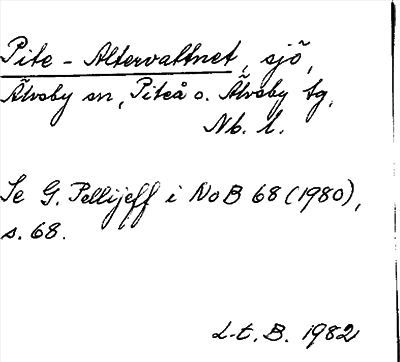 Pite-Altervattnet, sjö,
Älvsby sn, Piteå o. Älvsby tg,
Nb. l.
Se G. Pellijeff i NoB 68 (1980),
s. 68.
L-t. B. 1982